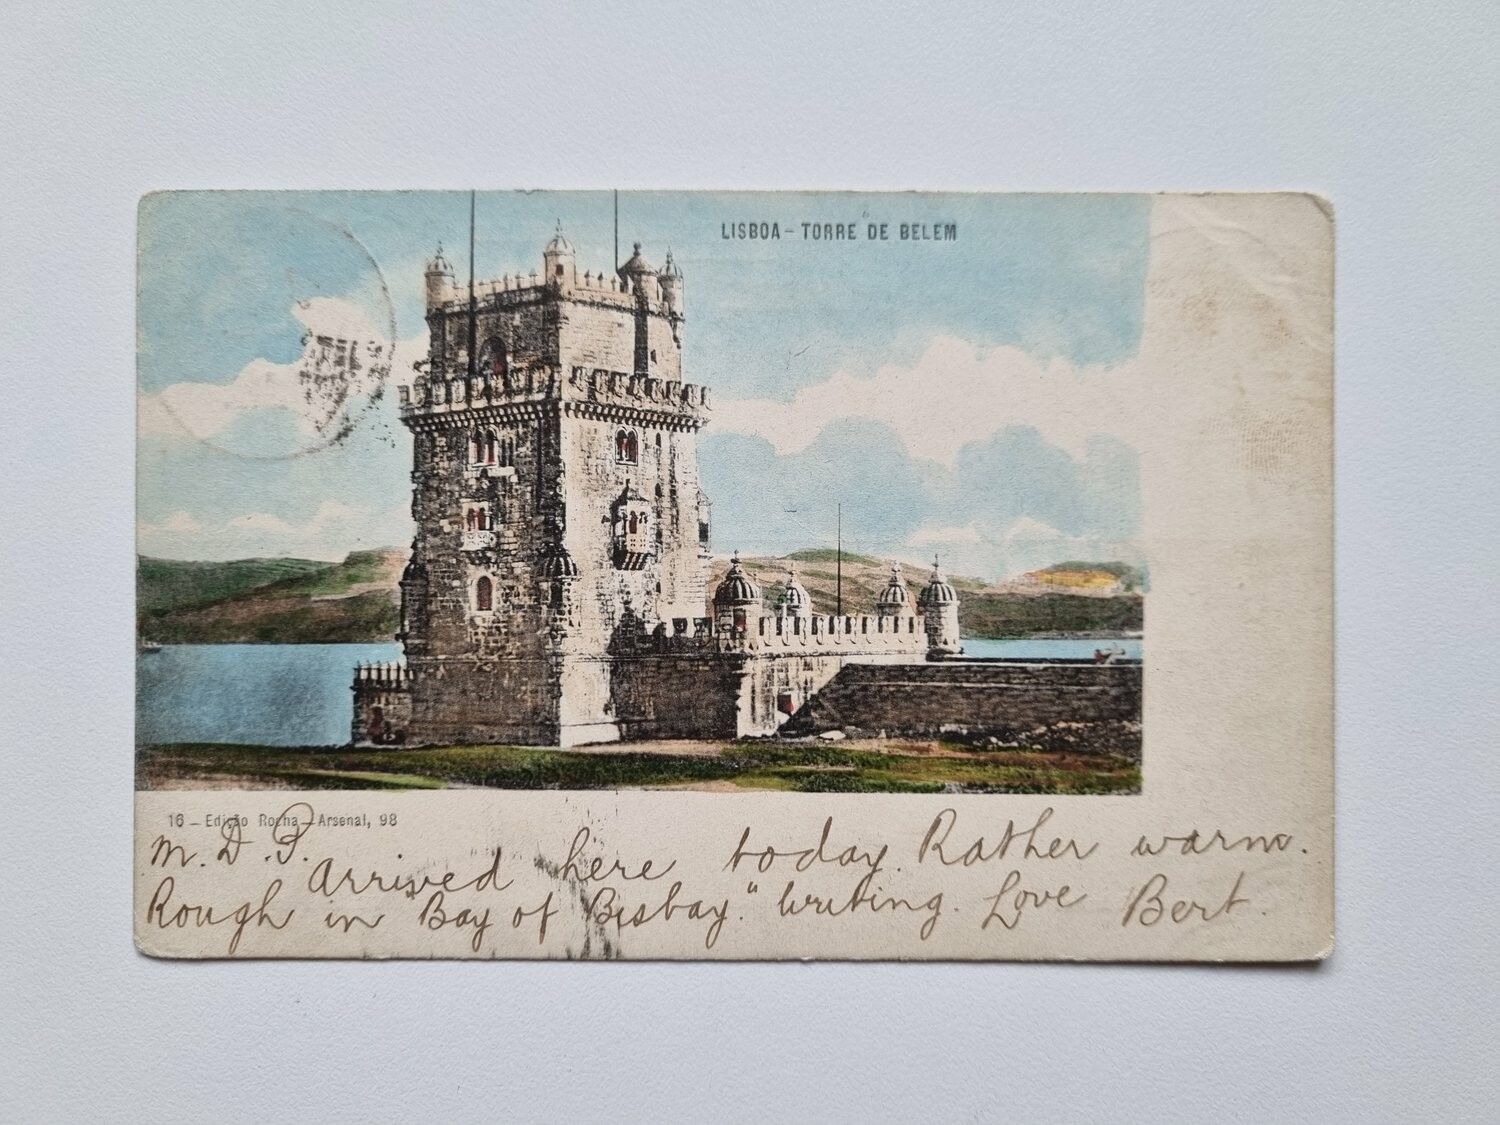 LISBOA - TORRE DE BELEM
16 - Edição Rocha - Arsenal, 98
M. D. P.
Arrived here today. Rather warm.
Rough in "Bay of Bisbay." Writing. Love Bert.